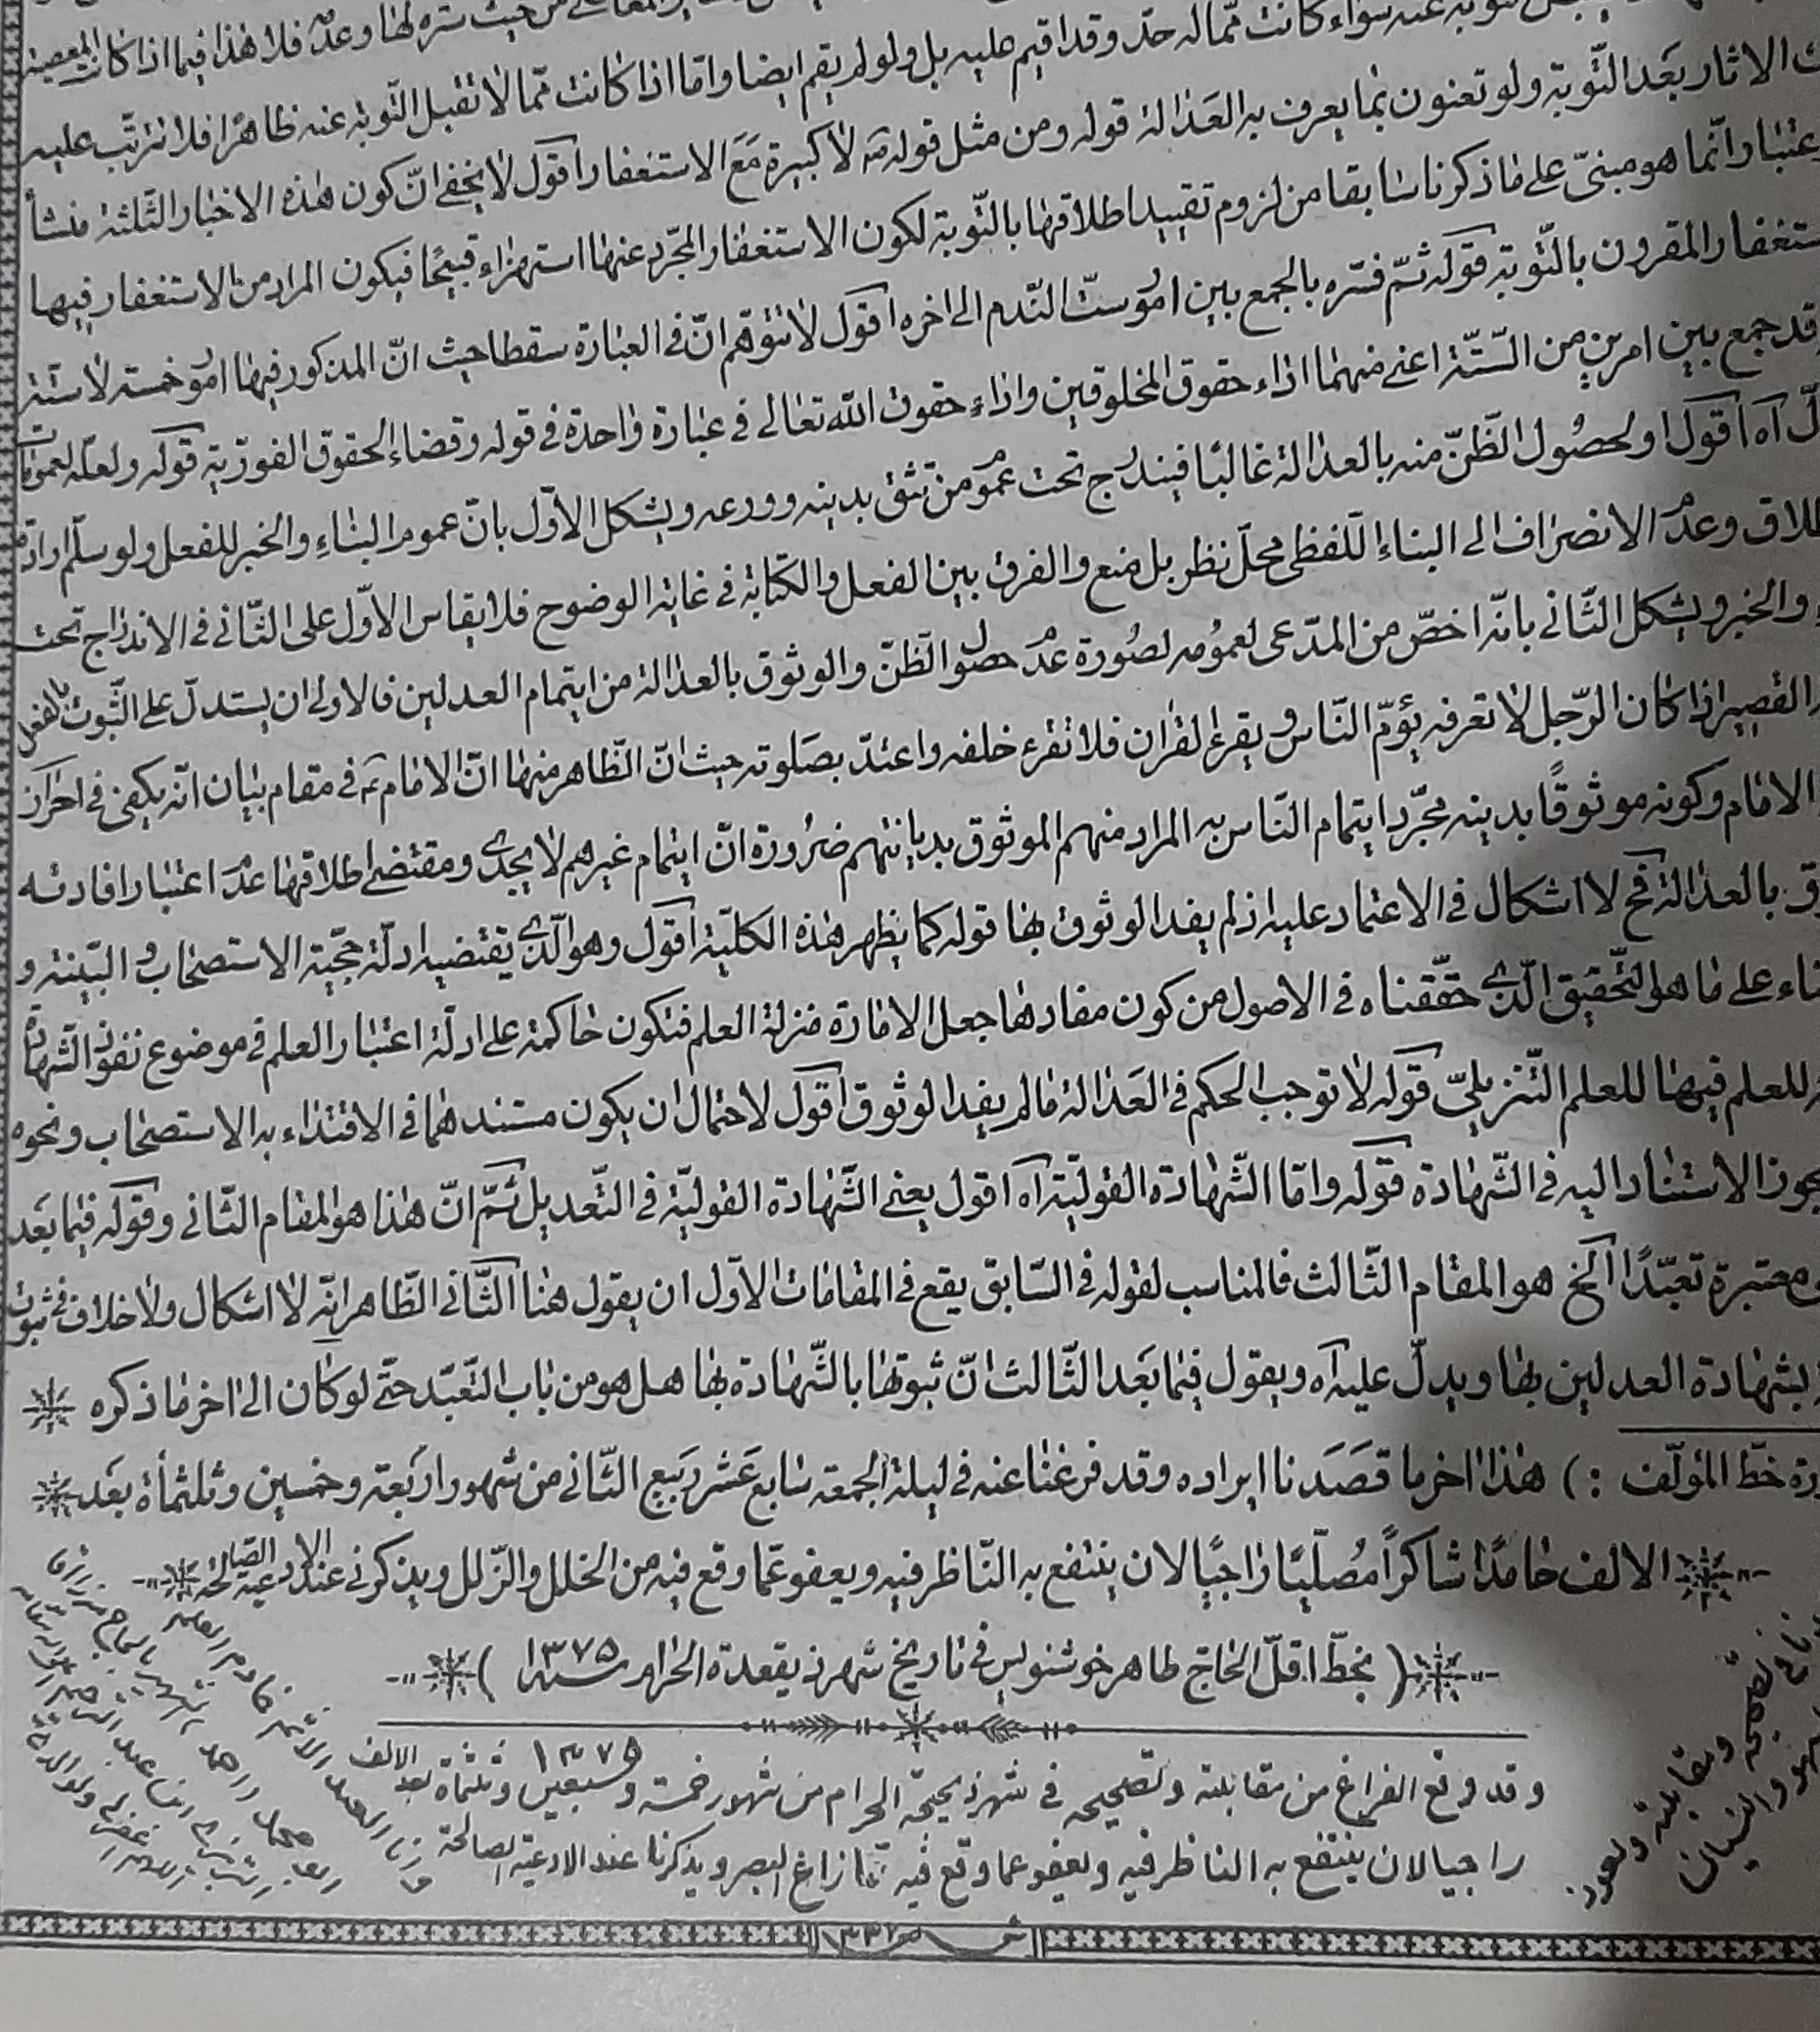 توبة عنه سواء كانت ممّا له حدّ وقد اقيم عليه بل ولو لم يقم ايضا وامّا اذا كانت ممّا لا تقبل التّوبة عنه ظاهرًا فلا تترتّب عليه
الاثار بعد التّوبة ولو تعنون بما يعرف به العدالة قوله ومن مثل قوله ع لا كبيرة مع الاستغفار اقول لا يخفى انّ كون هذه الاخبار الثّلثة منشأ
انّما هو مبنىّ على ما ذكرنا سابقا من لزوم تقييد اطلاقها بالتّوبة لكون الاستغفار المجرّد عنها استهزاء قبيحًا فيكون المراد من الاستغفار فيها
المقرون بالتّوبة قوله ثمّ فسّره بالجمع بين امور ستّ النّدم الى اخره اقول لا تتوهّم انّ فى العبارة سقطا حيث انّ المذكور فيها امور خمسة لا ستّة
قد جمع بين امرين من السّتّة اعنى منهما اداء حقوق المخلوقين واداء حقوق الله تعالى فى عبارة واحدة فى قوله وقضاء الحقوق الفوريّة قوله ولعلّه لعمومات
اه اقول او لحصول الظّنّ منه بالعدالة غالبًا فيندرج تحت عموم من تثق بدينه وورعه ويشكل الاوّل بانّ عموم البناء والخبر للفعل ولو سلّم
وعدم الانصراف الى البناء اللّفظى محلّ نظر بل منع والفرق بين الفعل والكتابة فى غاية الوضوح فلا يقاس الاوّل على الثّانى فى الاندراج تحت
والخبر ويشكل الثّانى بانّه اخصّ من المدّعى لعمومه لصورة عدم حصول الظّنّ والوثوق بالعدالة من ايتمام العدلين فالاولى ان يستدلّ على الثّبوت بالفعل
اذا كان الرّجل لا تعرفه يؤمّ النّاس ويقرء القران فلا تقرء خلفه واعتدّ بصلوته حيث انّ الظّاهر منها انّ الامام ع فى مقام بيان انّه يكفى فى احراز
الامام وكونه موثوقًا بدينه مجرّد ايتمام النّاس به المراد منهم الموثوق بديانتهم ضرورة انّ ايتمام غيرهم لا يجدى ومقتضى اطلاقها عدم اعتبار افادته
بالعدالة فح لا اشكال فى الاعتماد عليه اذ لم يفد الوثوق بها قوله كما يظهر هذه الكليّة اقول وهو الّذى يقتضيه ادلّة حجّية الاستصحاب والبيّنة و
على ما هو التّحقيق الّذى حقّقناه فى الاصول من كون مفادها جعل الامارة منزلة العلم فتكون حاكمة على ادلّة اعتبار العلم فى موضوع نفوذ الشّهادة
للعلم فيها للعلم التّنزيلىّ قوله لا توجب الحكم فى العدالة ما لم يفد الوثوق اقول لاحتمال ان يكون مستندهما فى الاقتداء به الاستصحاب ونحوه
الاستناد اليه فى الشّهادة قوله وامّا الشّهادة القوليّة اه اقول يعنى الشّهادة القوليّة فى التّعديل ثمّ انّ هذا هو المقام الثّانى وقوله فيما بعد
معتبرة تعبّدًا الخ هو المقام الثّالث فالمناسب لقوله فى السّابق يقع فى المقامات الاوّل ان يقول هنا الثّانى الظّاهر انّه لا اشكال ولا خلاف فى ثبوت
بشهادة العدلين بها ويدلّ عليه اه ويقول فيما بعد الثّالث انّ ثبوتها بالشّهادة بها هل هو من باب التّعبّد حتّى لو كان الى اخر ما ذكره
خطّ المؤلّف :) هذا اخر ما قصدنا ايراده وقد فرغنا عنه فى ليلة الجمعة سابع عشر ربيع الثّانى من شهور اربعة وخمسين وثلثمأة بعد
الالف حامدًا شاكرًا مصلّيًا راجيًا لان ينتفع به النّاظر فيه ويعفو عمّا وقع فيه من الخلل والزّلل ويذكرنى عند الادعية الصّالحة
( بخطّ اقلّ الحاج طاهر خوشنويس فى تاريخ شهر ذيقعدة الحرام سنه ١٣٧٥ )
وقد وقع الفراغ من مقابلته وتصحيحه فى شهر ذيحجّة الحرام من شهور خمسة وسبعين وثلثماة بعد الالف ١٣٧٥
راجيا لان ينتفع به الناظر فيه ويعفو عما وقع فيه مما زاغ البصر ويذكرنا عند الادعية الصالحة